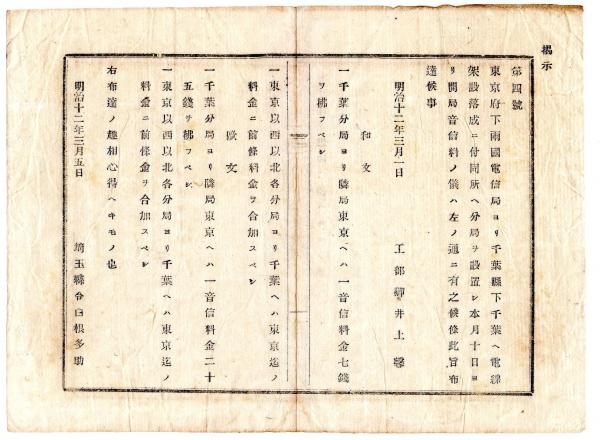 揭示
第四號
東京府下兩國電信局ヨリ千葉縣下千葉ヘ電線
架設落成ニ付同所ヘ分局ヲ設置シ本月十日ヨ
リ開局音信料ノ儀ハ左ノ通ニ有之候條此旨布
達候事
明治十二年三月一日
工部卿井上馨
和文
一千葉分局ヨリ隣局東京ヘハ一音信料金七錢
ヲ拂フベシ
一東京以西以北各分局ヨリ千葉ヘハ東京迄ノ
料金ニ前條料金ヲ合加スベシ
歐文
一千葉分局ヨリ隣局東京ヘハ一音信料金二十
五錢ヲ拂フベシ
一東京以西以北各分局ヨリ千葉ヘハ東京迄ノ
料金ニ前條料金ヲ合加スベシ
右布達ノ趣相心得ヘキモノ也
明治十二年三月五日
埼玉縣令白根多助